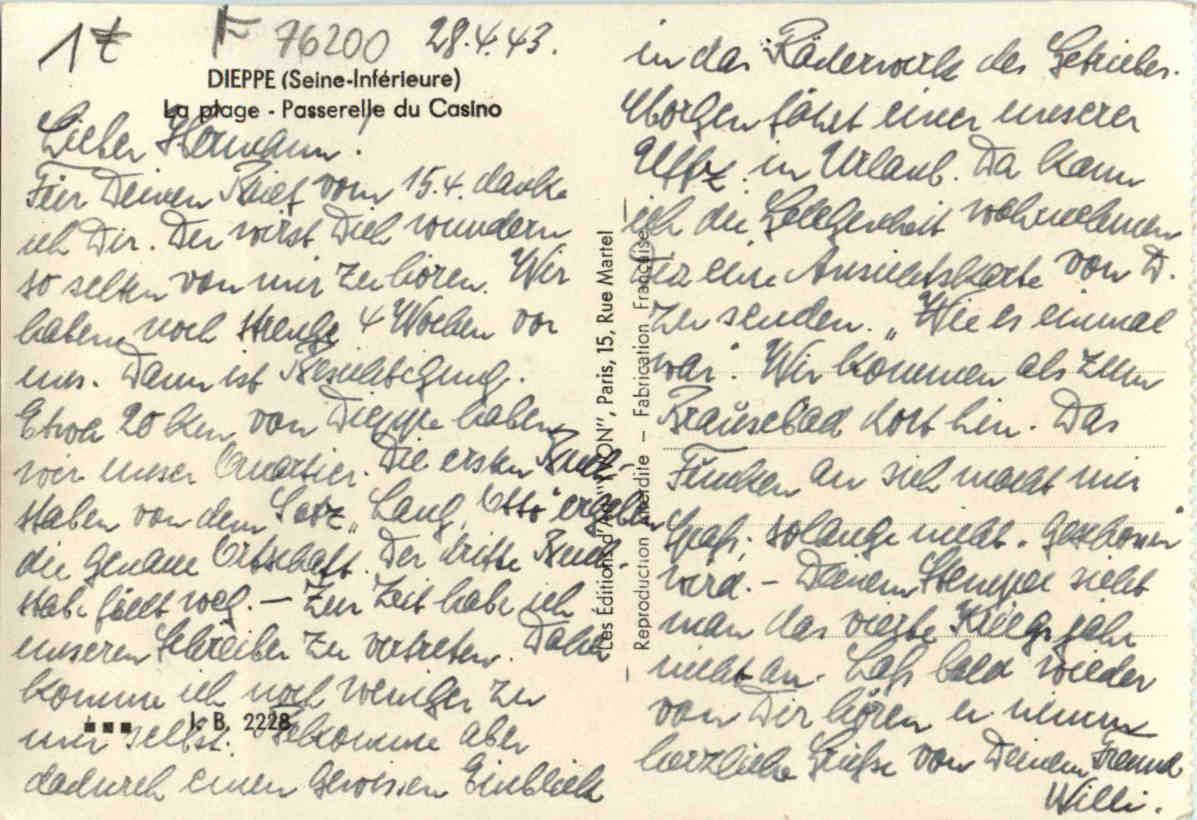 1 F 76200 28.4.43.
DIEPPE (Seine-Inférieure)
La plage - Passerelle du Casino
Lieber Hermann!
Für Deinen Brief vom 15.4. danke
ich Dir. Du wirst Dich wundern
so selten von mir zu hören. Wir
haben noch strenge 4 Wochen vor
uns. Dann ist Besichtigung.
Etwa 20 km von Dieppe haben
wir unser Quartier. Die ersten Buch-
staben von dem Satz „Lang, Otto" ergeben
die genaue Ortschaft. Der dritte Buch-
stabe fällt weg. — Zur Zeit habe ich
unseren Schreiber zu vertreten. Daher
komme ich noch weniger zu
mir selbst. Bekomme aber
dadurch einen gewissen Einblick
■■■ J. B. 2228
Les Editions d'Art "YVON", Paris, 15, Rue Martel
Reproduction interdite — Fabrication Française
in das Räderwerk des Getriebes.
Morgen fährt einer unserer
Uffz. in Urlaub. Da kann
ich die Gelegenheit wahrnehmen
Dir eine Ansichtskarte von D.
zu senden. „Wie es einmal
war". Wir kommen als zum
Brausebad dort hin. Das
Funken an sich macht mir
Spaß, solange nicht
wird. — Deinem Stempel sieht
man das vierte Kriegsjahr
nicht an. Laß bald wieder
von Dir hören u. nimm
herzliche Grüße von Deinem Freund
Willi.